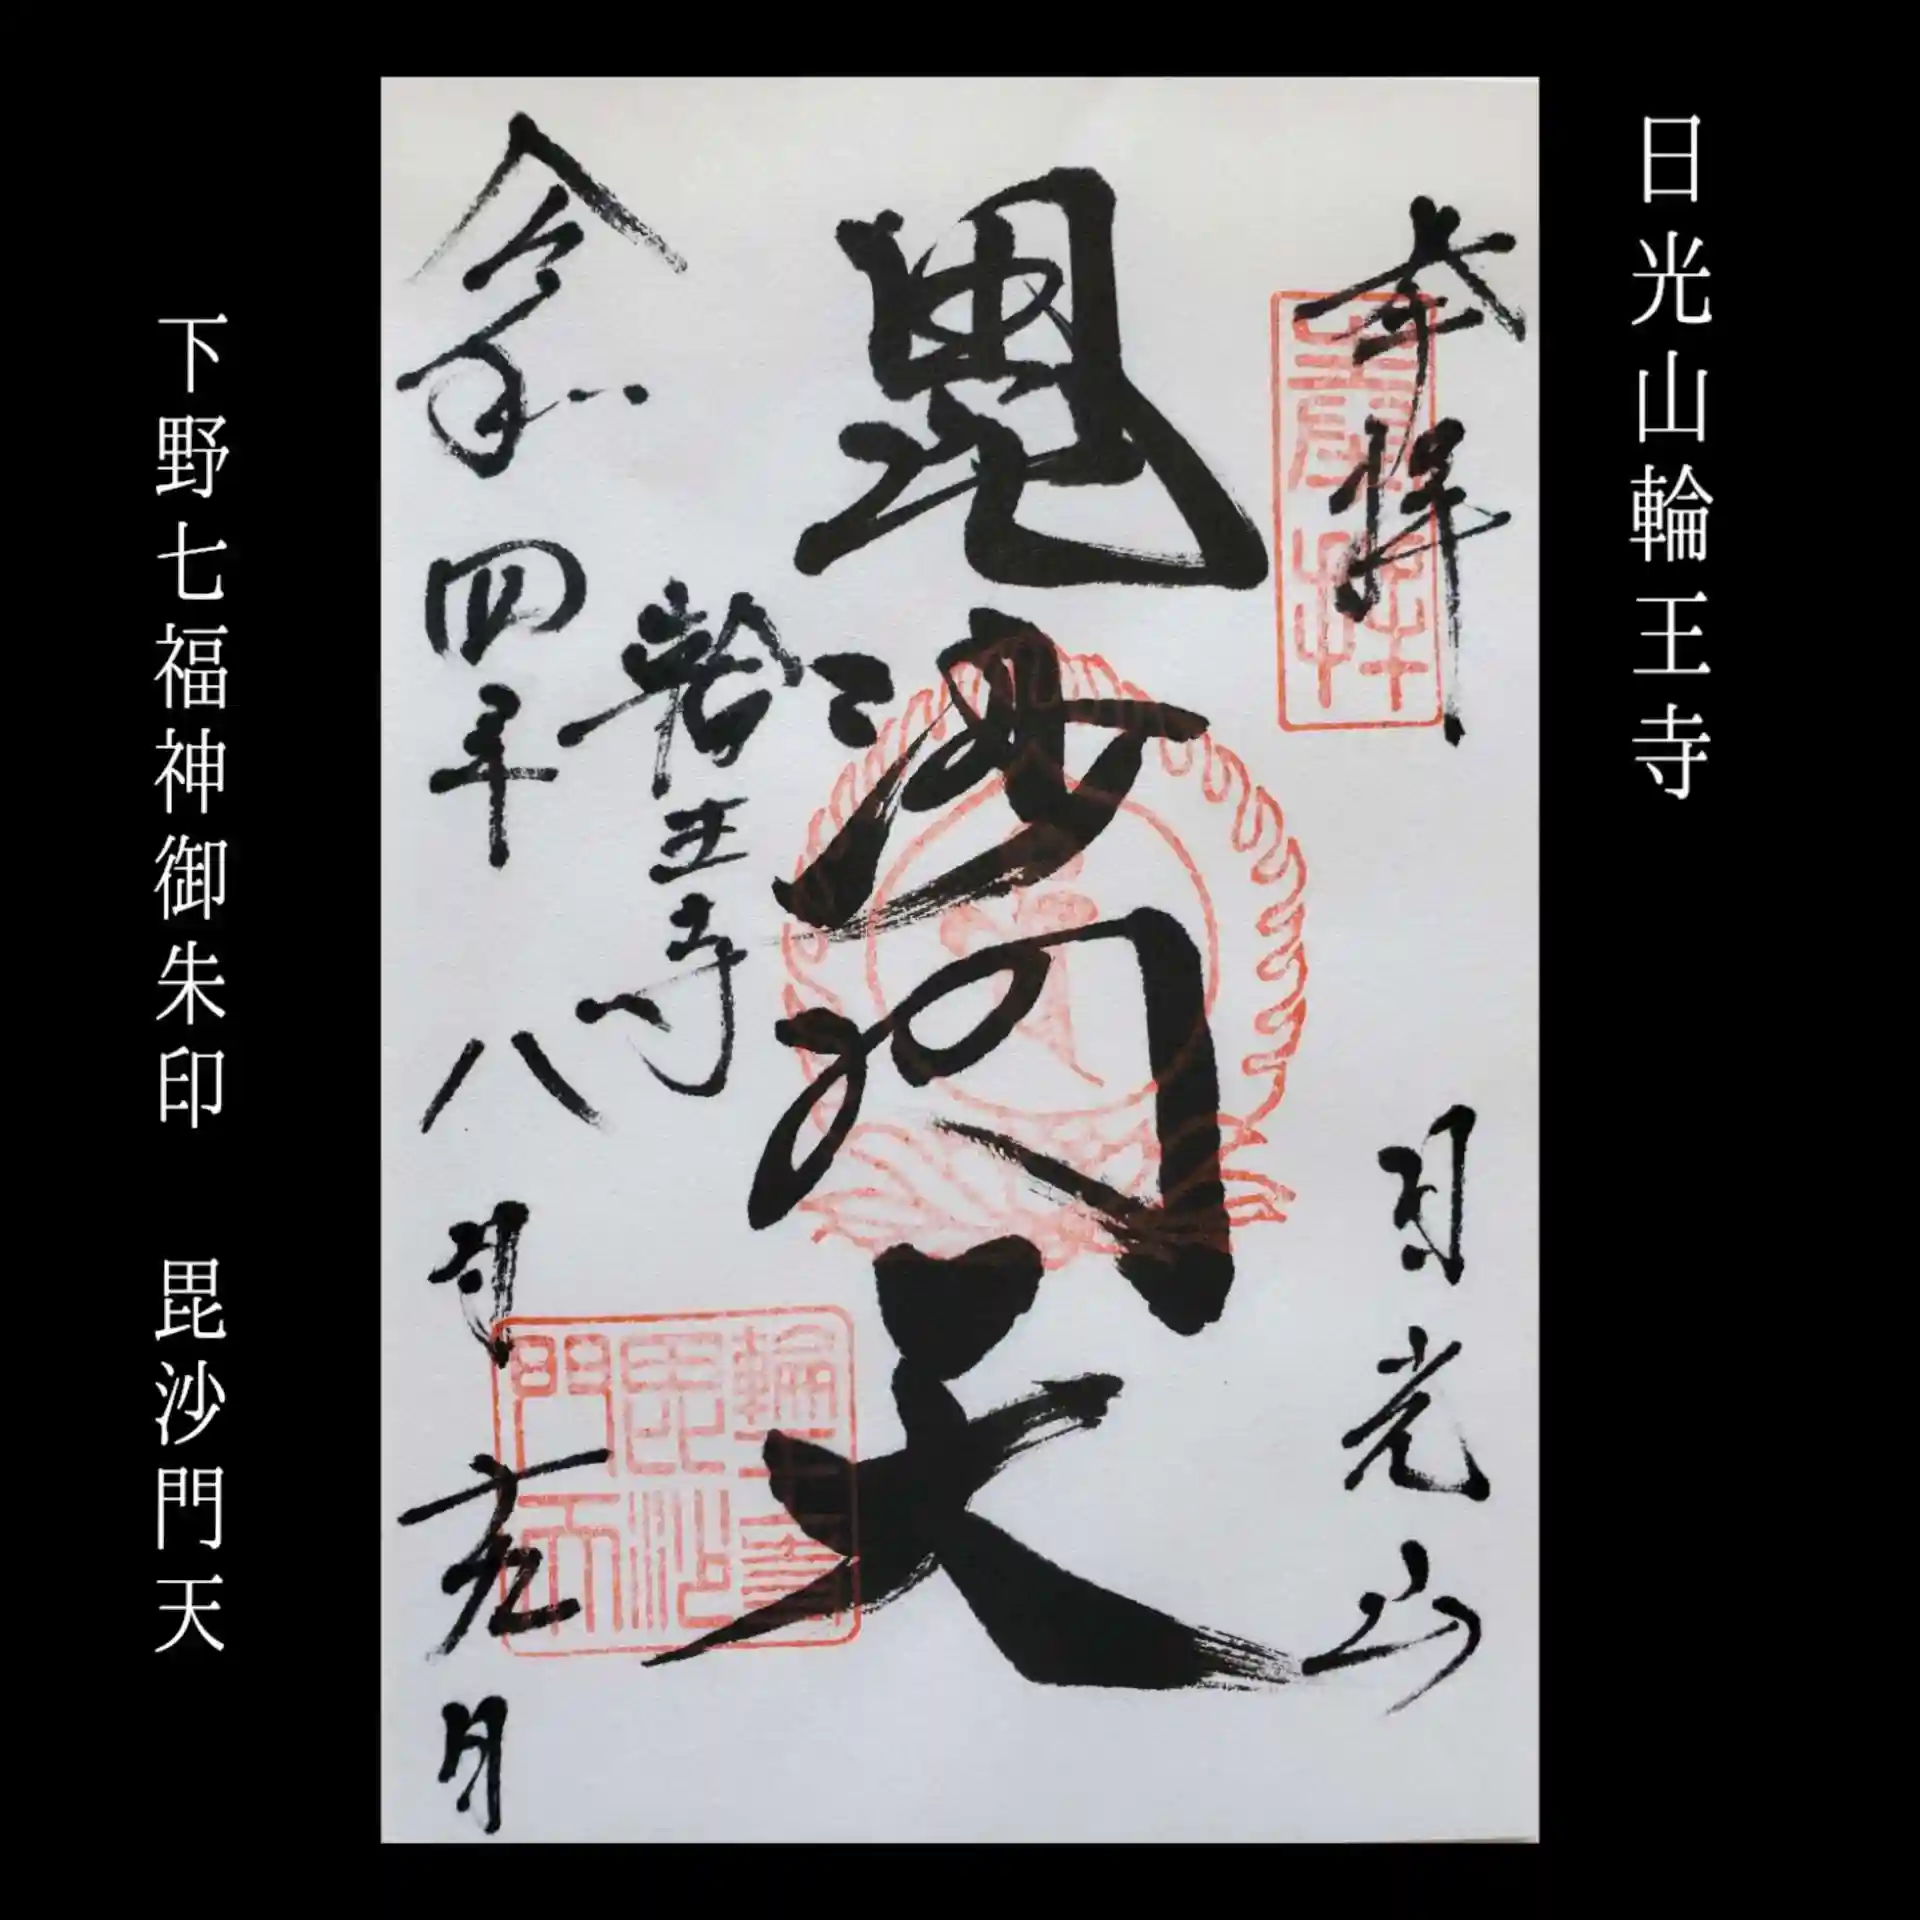 日光山輪王寺
奉拝
日光山
毘沙門天
輪王寺
令和四年八月 月
奉拝
輪王寺
毘沙
門天
下野七福神御朱印　毘沙門天